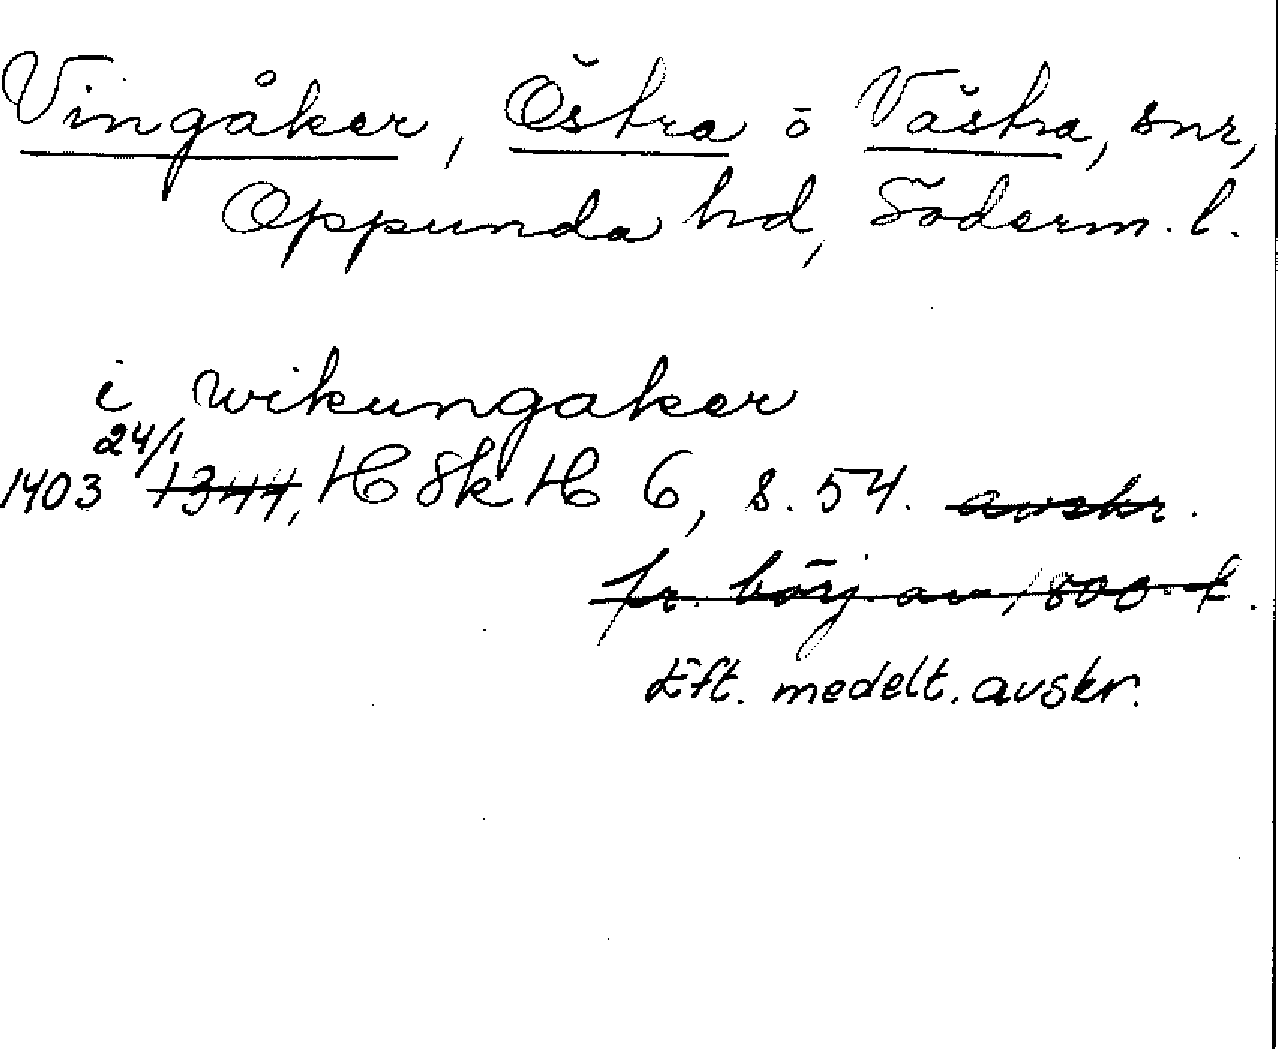 Vingåker, Östra o Västra, snr,
Oppunda hd, Söderm. l.
i wikungaker
24/1
1403 1344, HSkH 6, s. 54. avskr.
fr. börj. av 1800-t.
Eft. medelt. avskr.